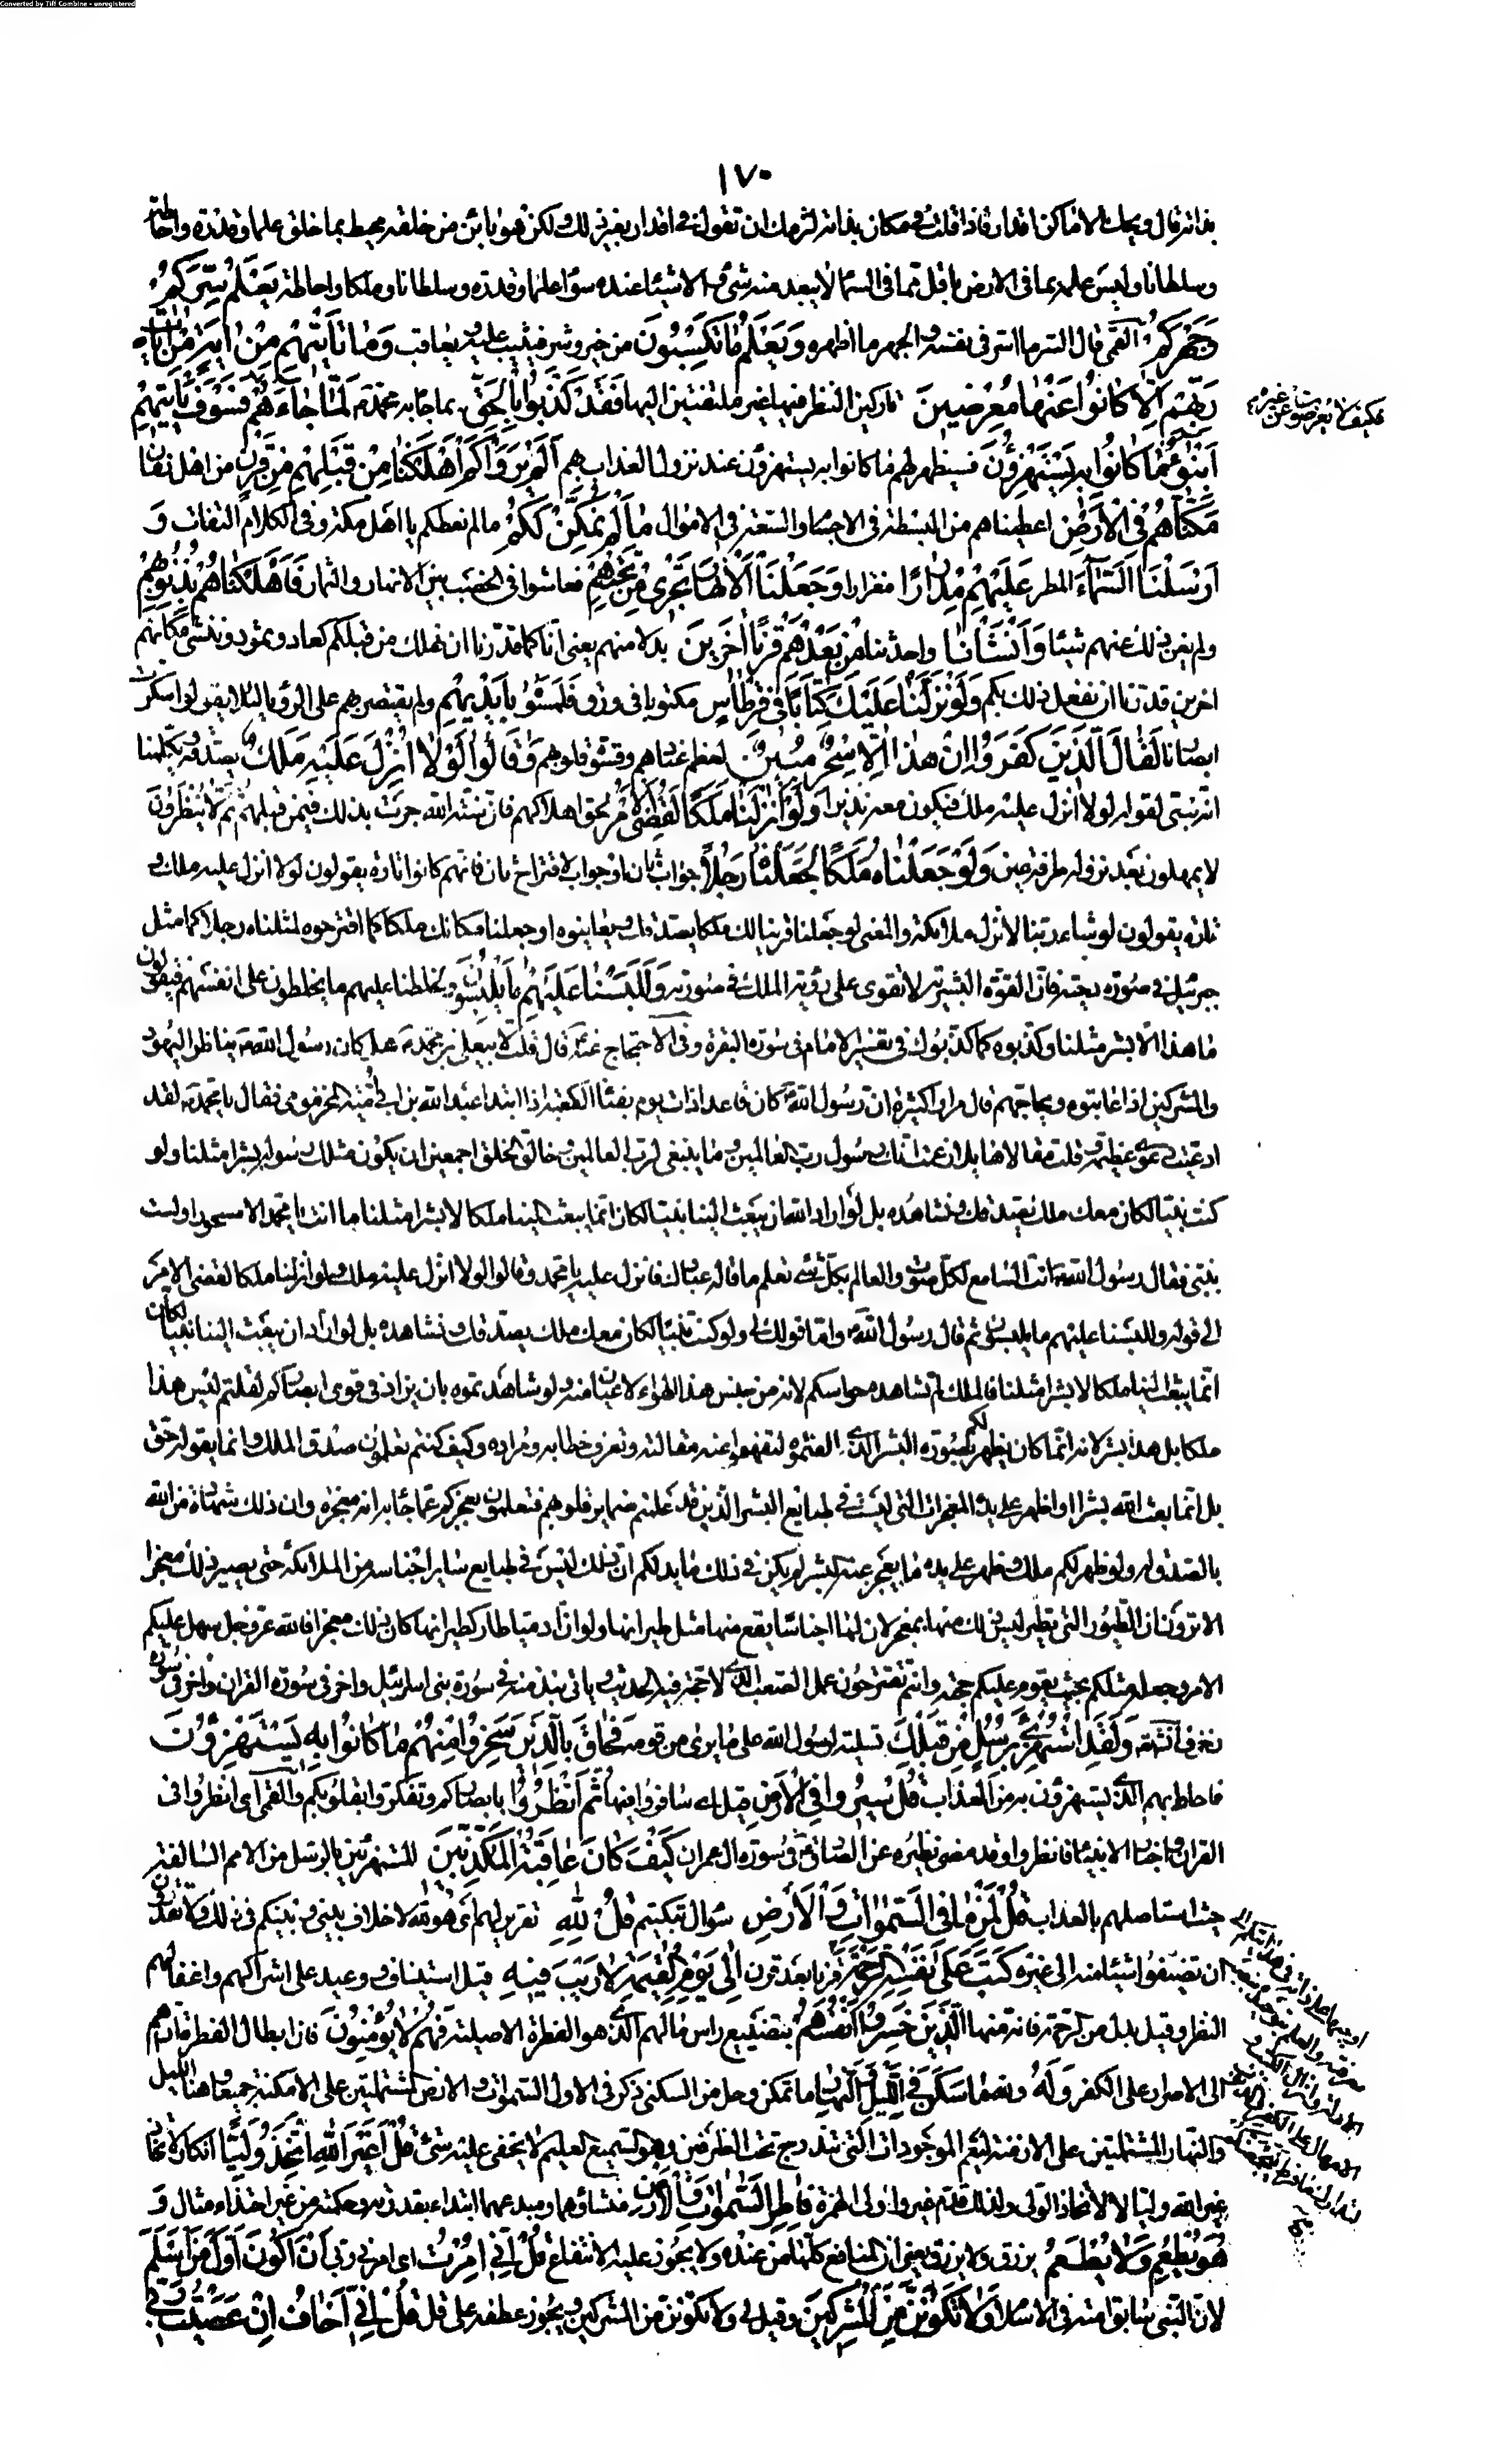 Converted by Tiff Combine - unregistered
١٧٠
بذاته قال ويحك الاماكن اقدار فاذا قلت في مكان بذاته لزمك ان تقول في اقدار وغير ذلك ولكن هو باين من خلقه محيط بما خلق علما وقدرة واحاطة
وسلطانا وليس علمه بما في الارض باقل مما في السماء لا يبعد منه شيء والاشياء عنده سواء علما وقدرة وسلطانا وملكا واحاطة يَعْلَمُ سِرَّكُمْ
وَجَهْرَكُمْ القمي قال السر ما اسر في نفسه والجهر ما اظهره وَيَعْلَمُ مَا تَكْسِبُونَ من خير وشر فيثيب عليه ويعاقب وَمَا تَأْتِيهِمْ مِنْ آيَةٍ مِنْ آيَاتِ
رَبِّهِمْ إِلَّا كَانُوا عَنْهَا مُعْرِضِينَ تاركين النظر فيها غير ملتفتين اليها فَقَدْ كَذَّبُوا بِالْحَقِّ بما جاء به محمد لَمَّا جَاءَهُمْ فَسَوْفَ يَأْتِيهِمْ
فكيف لا يعرضون عن غيره
أَنْبَاءُ مَا كَانُوا بِهِ يَسْتَهْزِؤُنَ فسيظهر لهم ما كانوا به يستهزؤن عند نزول العذاب بهم أَلَمْ يَرَوْا كَمْ أَهْلَكْنَا مِنْ قَبْلِهِمْ مِنْ قَرْنٍ من اهل زمان
مَكَّنَّاهُمْ فِي الْأَرْضِ اعطيناهم من البسطة في الاجسام والسعة في الاموال مَا لَمْ نُمَكِّنْ لَكُمْ ما لم نعطكم يا اهل مكة وفي الكلام التفات وَ
أَرْسَلْنَا السَّمَاءَ المطر عَلَيْهِمْ مِدْرَارًا مغزارا وَجَعَلْنَا الْأَنْهَارَ تَجْرِي مِنْ تَحْتِهِمْ فعاشوا في الخصب بين الانهار والثمار فَأَهْلَكْنَاهُمْ بِذُنُوبِهِمْ
ولم يغن ذلك عنهم شيئا وَأَنْشَأْنَا واحدثنا مِنْ بَعْدِهِمْ قَرْنًا آخَرِينَ بدلا منهم يعني انا كما قدرنا ان نهلك من قبلكم كعاد وثمود وننشئ مكانهم
اخرين قدرنا ان نفعل ذلك بكم وَلَوْ نَزَّلْنَا عَلَيْكَ كِتَابًا فِي قِرْطَاسٍ مكتوبا في ورق فَلَمَسُوهُ بِأَيْدِيهِمْ ولم يقتصر بهم على الرؤية لئلا يقولوا سكرت
ابصارنا لَقَالَ الَّذِينَ كَفَرُوا إِنْ هَذَا إِلَّا سِحْرٌ مُبِينٌ لعظم عنادهم وقسوة قلوبهم وَقَالُوا لَوْلَا أُنْزِلَ عَلَيْهِ مَلَكٌ يصدقه ويكلمنا
انه نبي لقوله لولا انزل عليه ملك فيكون معه نذيرا وَلَوْ أَنْزَلْنَا مَلَكًا لَقُضِيَ الْأَمْرُ لحق اهلاكهم فان سنة الله جرت بذلك فيمن قبلهم ثُمَّ لَا يُنْظَرُونَ
لا يمهلون بعد نزوله طرفة عين وَلَوْ جَعَلْنَاهُ مَلَكًا لَجَعَلْنَاهُ رَجُلًا جواب ثان او جواب لاقتراح ثان فانهم كانوا تارة يقولون لولا انزل عليه ملك و
تارة يقولون لو شاء ربنا لانزل ملائكة والمعنى لو جعلنا قرينا لك ملكا يصدقك ويعاينوه او جعلنا مكانك ملكا كما اقترحوه لمثلناه رجلا كما مثل
جبرئيل في صورة دحية فان القوة البشرية لا تقوى على رؤية الملك في صورته وَلَلَبَسْنَا عَلَيْهِمْ مَا يَلْبِسُونَ ولخلطنا عليهم ما يخلطون على انفسهم فيقولون
ما هذا الا بشر مثلنا وكذبوه كما كذبوك في تفسير الامام في سورة البقرة وفي الاحتجاج عنه قال قلت لابي علي بن محمد هل كان رسول الله يناظر اليهود
والمشركين اذا عاتبوه ويحاجهم قال مرارا كثيرة ان رسول الله كان قاعدا ذات يوم بفناء الكعبة اذ ابتدا عبد الله بن ابي امية المخزومي فقال يا محمد لقد
ادعيت دعوى عظيمة وقلت مقالا هائلا زعمت انك رسول رب العالمين وما ينبغي لرب العالمين وخالق الخلق اجمعين ان يكون مثلك رسوله بشرا مثلنا ولو
كنت نبيا لكان معك ملك يصدقك ونشاهده بل لو اراد الله ان يبعث الينا نبيا لكان انما يبعث الينا ملكا لا بشرا مثلنا ما انت يا محمد الا مسحورا ولست
بنبي فقال رسول الله انت السامع لكل صوت والعالم بكل شيء تعلم ما قاله عبادك فانزل عليه يا محمد وقالوا لولا انزل عليه ملك ولو انزلنا ملكا لقضي الامر
الى قوله وللبسنا عليهم ما يلبسون ثم قال رسول الله واما قولك لي ولو كنت نبيا لكان معك ملك يصدقك ونشاهده بل لو اراد ان يبعث الينا نبيا لكان
انما يبعث الينا ملكا لا بشرا مثلنا فالملك لم تشاهده حواسكم لانه من جنس هذا الهواء لا عيان منه ولو شاهدتموه بان يزاد في قوى ابصاركم لقلتم ليس هذا
ملكا بل هذا بشر لانه انما كان يظهر لكم بصورة البشر الذي الفتموه لتفهموا عنه مقالته وتعرفوا خطابه ومراده وكيف كنتم تعلمون صدق الملك وان ما يقوله حق
بل انما بعث الله بشرا واظهر على يده المعجزات التي ليست في طبايع البشر الذين قد علمتم ضماير قلوبهم فتعلمون بعجزكم عما جاء به انه معجزة وان ذلك شهادة من الله
بالصدق له ولو ظهر لكم ملك وظهر على يده ما يعجز عنه البشر لم يكن في ذلك ما يدلكم ان ذلك ليس في طبايع ساير اجناسه من الملائكة حتى يصير ذلك معجزا
الا ترون ان الطيور التي تطير ليس ذلك منها بمعجز لان لها اجناسا يقع منها مثل طيرانها ولو ان ادميا طار كطيرانها كان ذلك معجزا فالله عز وجل سهل عليكم
الامر وجعله مثلكم بحيث يقوم عليكم حجته وانتم تقترحون عمل الصعب الذي لا حجة فيه الحديث وياتي نبذ منه في سورة بني اسرائيل واخر في سورة الفرقان واخر في سورة
زخرف انشاء الله وَلَقَدِ اسْتُهْزِئَ بِرُسُلٍ مِنْ قَبْلِكَ تسلية لرسول الله على ما يرى من قومه فَحَاقَ بِالَّذِينَ سَخِرُوا مِنْهُمْ مَا كَانُوا بِهِ يَسْتَهْزِؤُنَ
فاحاط بهم الذي يستهزؤن به من العذاب قُلْ سِيرُوا فِي الْأَرْضِ قيل اي سافروا فيها ثُمَّ انْظُرُوا بابصاركم وتفكروا بقلوبكم والقمي اي انظروا في
القران واخبار الانبياء فانظروا وقد مضى نظيره عن الصادق في سورة ال عمران كَيْفَ كَانَ عَاقِبَةُ الْمُكَذِّبِينَ المستهزئين بالرسل من الامم السالفة
حيث استاصلهم بالعذاب قُلْ لِمَنْ مَا فِي السَّمَوَاتِ وَالْأَرْضِ سؤال تبكيت قُلْ لِلَّهِ تقرير لهم اي هو لله لا خلاف بيني وبينكم في ذلك ولا تقدرون
ان تضيفوا شيئا منه الى غيره كَتَبَ عَلَى نَفْسِهِ الرَّحْمَةَ قرنا بعد قرن إِلَى يَوْمِ الْقِيَمَةِ لَا رَيْبَ فِيهِ قيل استيناف وعيد على اشراكهم واغفالهم
النظر وقيل بدل من الرحمة فانه منها الَّذِينَ خَسِرُوا أَنْفُسَهُمْ بتضييع راس مالهم الذي هو الفطرة الاصلية فَهُمْ لَا يُؤْمِنُونَ فان ابطال الفطرة اداهم
الى الاصرار على الكفر وَلَهُ مَا سَكَنَ فِي اللَّيْلِ وَالنَّهَارِ ما تمكن وحل من السكنى ذكر في الاول السموات والارض المشتملتين على الامكنة جميعا وهنا الليل
والنهار المشتملتين على الازمنة ليعم الموجودات التي تندرج تحت الظرفين وَهُوَ السَّمِيعُ الْعَلِيمُ لا يخفى عليه شيء قُلْ أَغَيْرَ اللَّهِ أَتَّخِذُ وَلِيًّا انكار لاتخاذ
غير الله وليا لا لاتخاذ الولي ولذلك قدم غير واولى الهمزة فَاطِرِ السَّمَوَاتِ وَالْأَرْضِ منشاؤهما ومبدعهما ابتداء بقدرته وحكمته من غير احتذاء مثال وَ
هُوَ يُطْعِمُ وَلَا يُطْعَمُ يرزق ولا يرزق يعني ان المنافع كلها من عنده ولا يجوز عليه الانتفاع قُلْ إِنِّي أُمِرْتُ اي امرني ربي أَنْ أَكُونَ أَوَّلَ مَنْ أَسْلَمَ
لان النبي سابق امته في الاسلام وَلَا تَكُونَنَّ مِنَ الْمُشْرِكِينَ وقيل لي ولا تكونن من المشركين ويجوز عطفه على قل قُلْ إِنِّي أَخَافُ إِنْ عَصَيْتُ رَبِّي